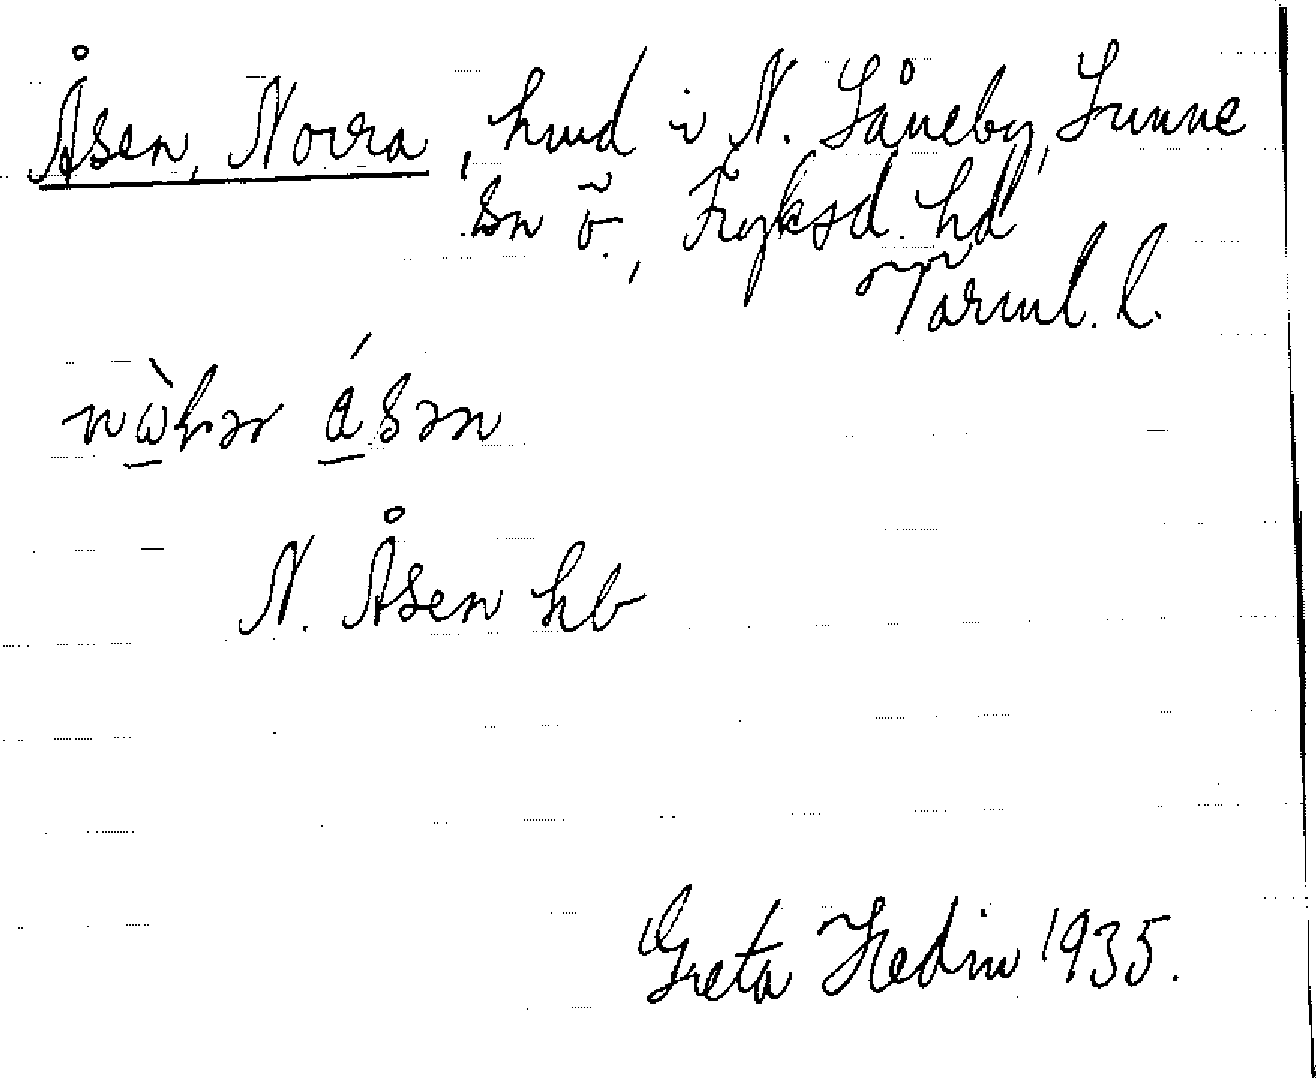 Åsen, Norra, hmd i N. Såneby, Sunne
sn ö., Fryksd. hd
Värml. l.
N. Åsen hb
Greta Hedin 1935.